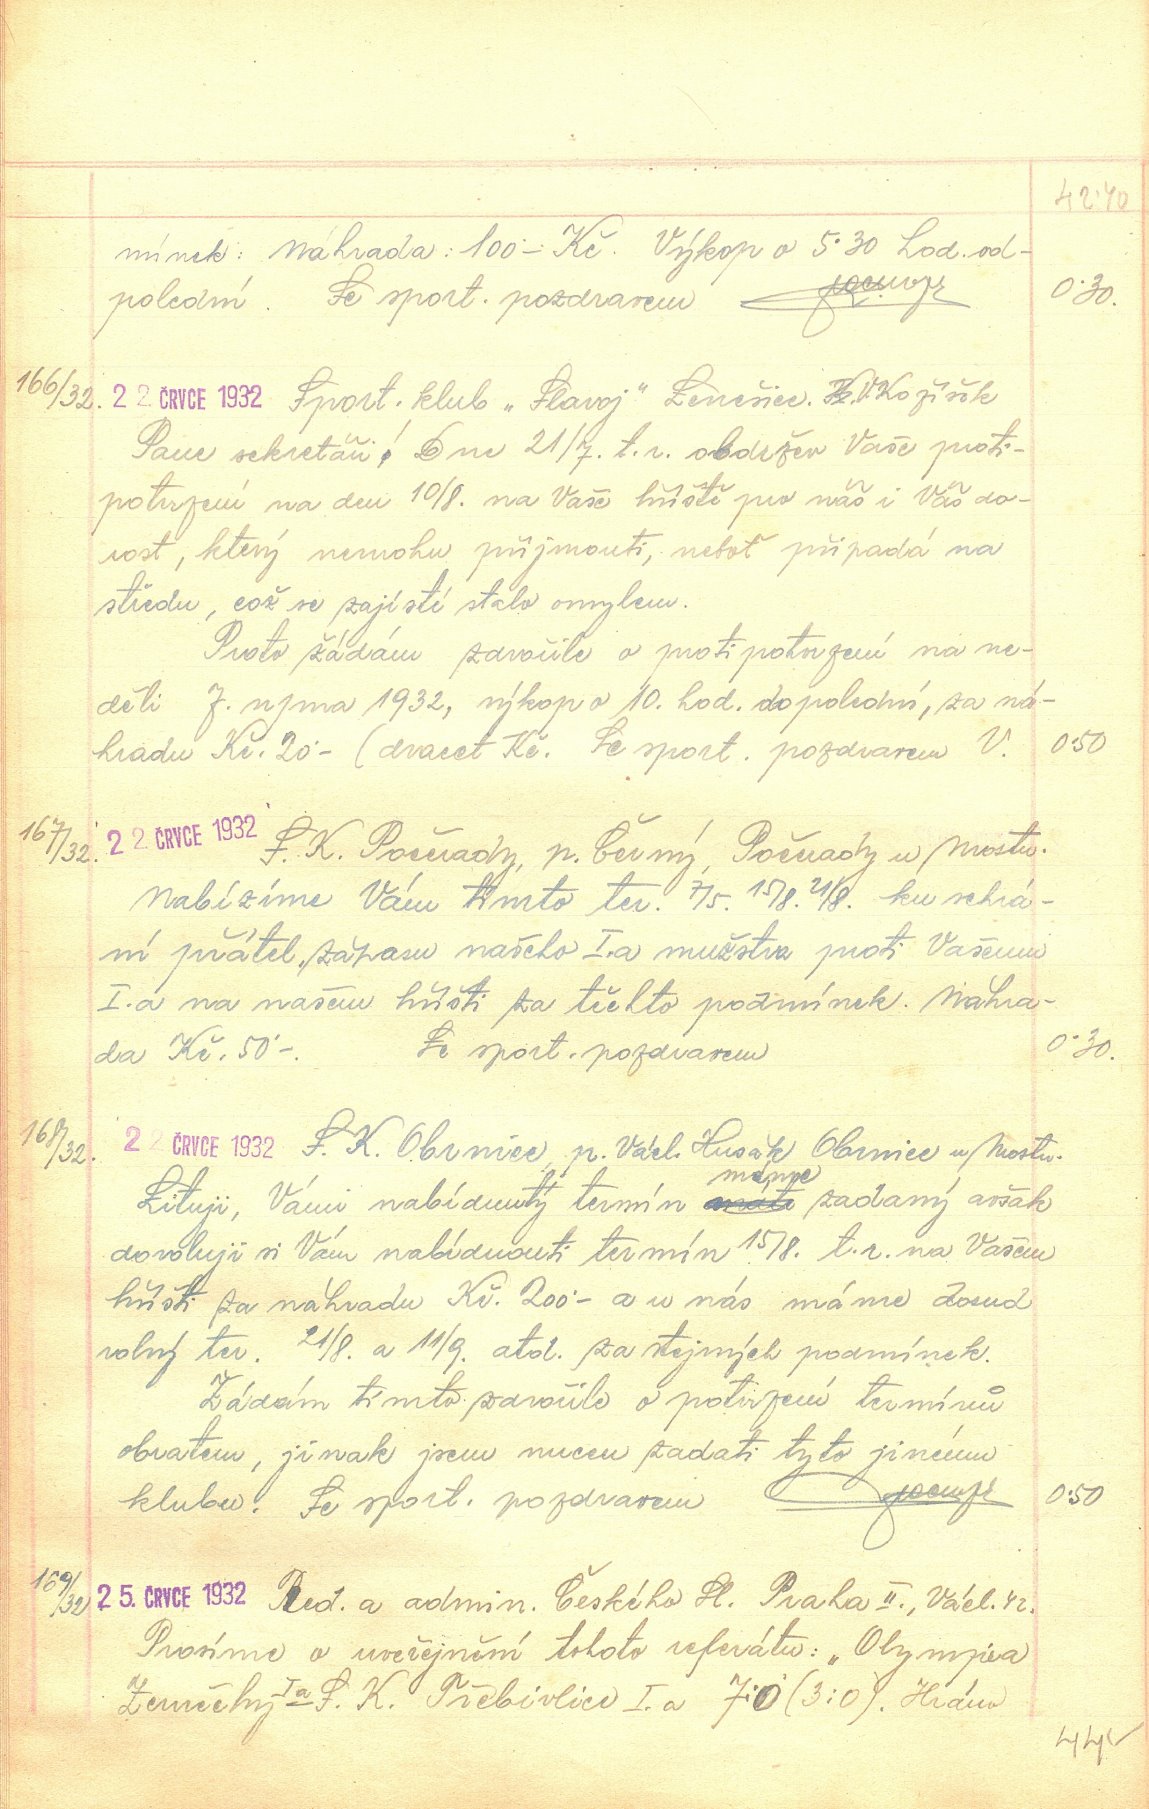 42:40
mínek: Náhrada: 100·– Kč. Výkop o 5·30 hod. od-
polední. Se sport. pozdravem 0·30.
166/32. 22 ČRVCE 1932 Sport. klub „Slavoj" Ženešice. V. Kozíšek
Pane sekretáři! Dne 21/7. t. r. obdržev Vaše proti-
potvrzení na den 10/8. na Vaše hřiště pro náš i Váš do-
rost, který nemohu přijmouti, neboť připadá na
středu, což se zajisté stalo omylem.
Proto žádám zdvořile o protipotvrzení na ne-
děli 7. srpna 1932, výkop o 10. hod. dopolední, za ná-
hradu Kč. 20·– (dvacet Kč. Se sport. pozdravem V. 0·50
167/32. 22 ČRVCE 1932 S. K. Počerady, p. Černý, Počerady u Mostu.
Nabízíme Vám tímto ter. 7/5. 15/8. 21/8. ku sehrá-
ní přátel. zápasu našeho I.a mužstva proti Vašemu
I.a na našem hřišti za těchto podmínek. Náhra-
da Kč. 50·–. Se sport. pozdravem 0·30.
168/32. 22 ČRVCE 1932 S. K. Obrnice, p. Václ. Husák Obrnice u Mostu.
máme
Lituji, Vámi nabídnutý termín zadaný avšak
dovoluji si Vám nabídnouti termín 15/8. t. r. na Vašem
hřišti za náhradu Kč. 200·– a u nás máme dosud
volný ter. 21/8. a 11/9. atd. za stejných podmínek.
Žádám tímto zdvořile o potvrzení termínů
obratem, jinak jsem nucen zadati tyto jinému
klubu. Se sport. pozdravem 0·50
169/32 25. ČRVCE 1932 Red. a admin. Českého Sl. Praha II., Václ. 42.
Prosíme o uveřejnění tohoto referátu: „Olympia
Zeměchy Ia S. K. Třebívlice I.a 7:0 (3:0). Hráno
44